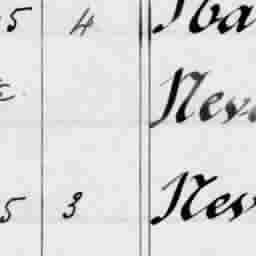 5 4 Iba
Neva
5 3 Nev